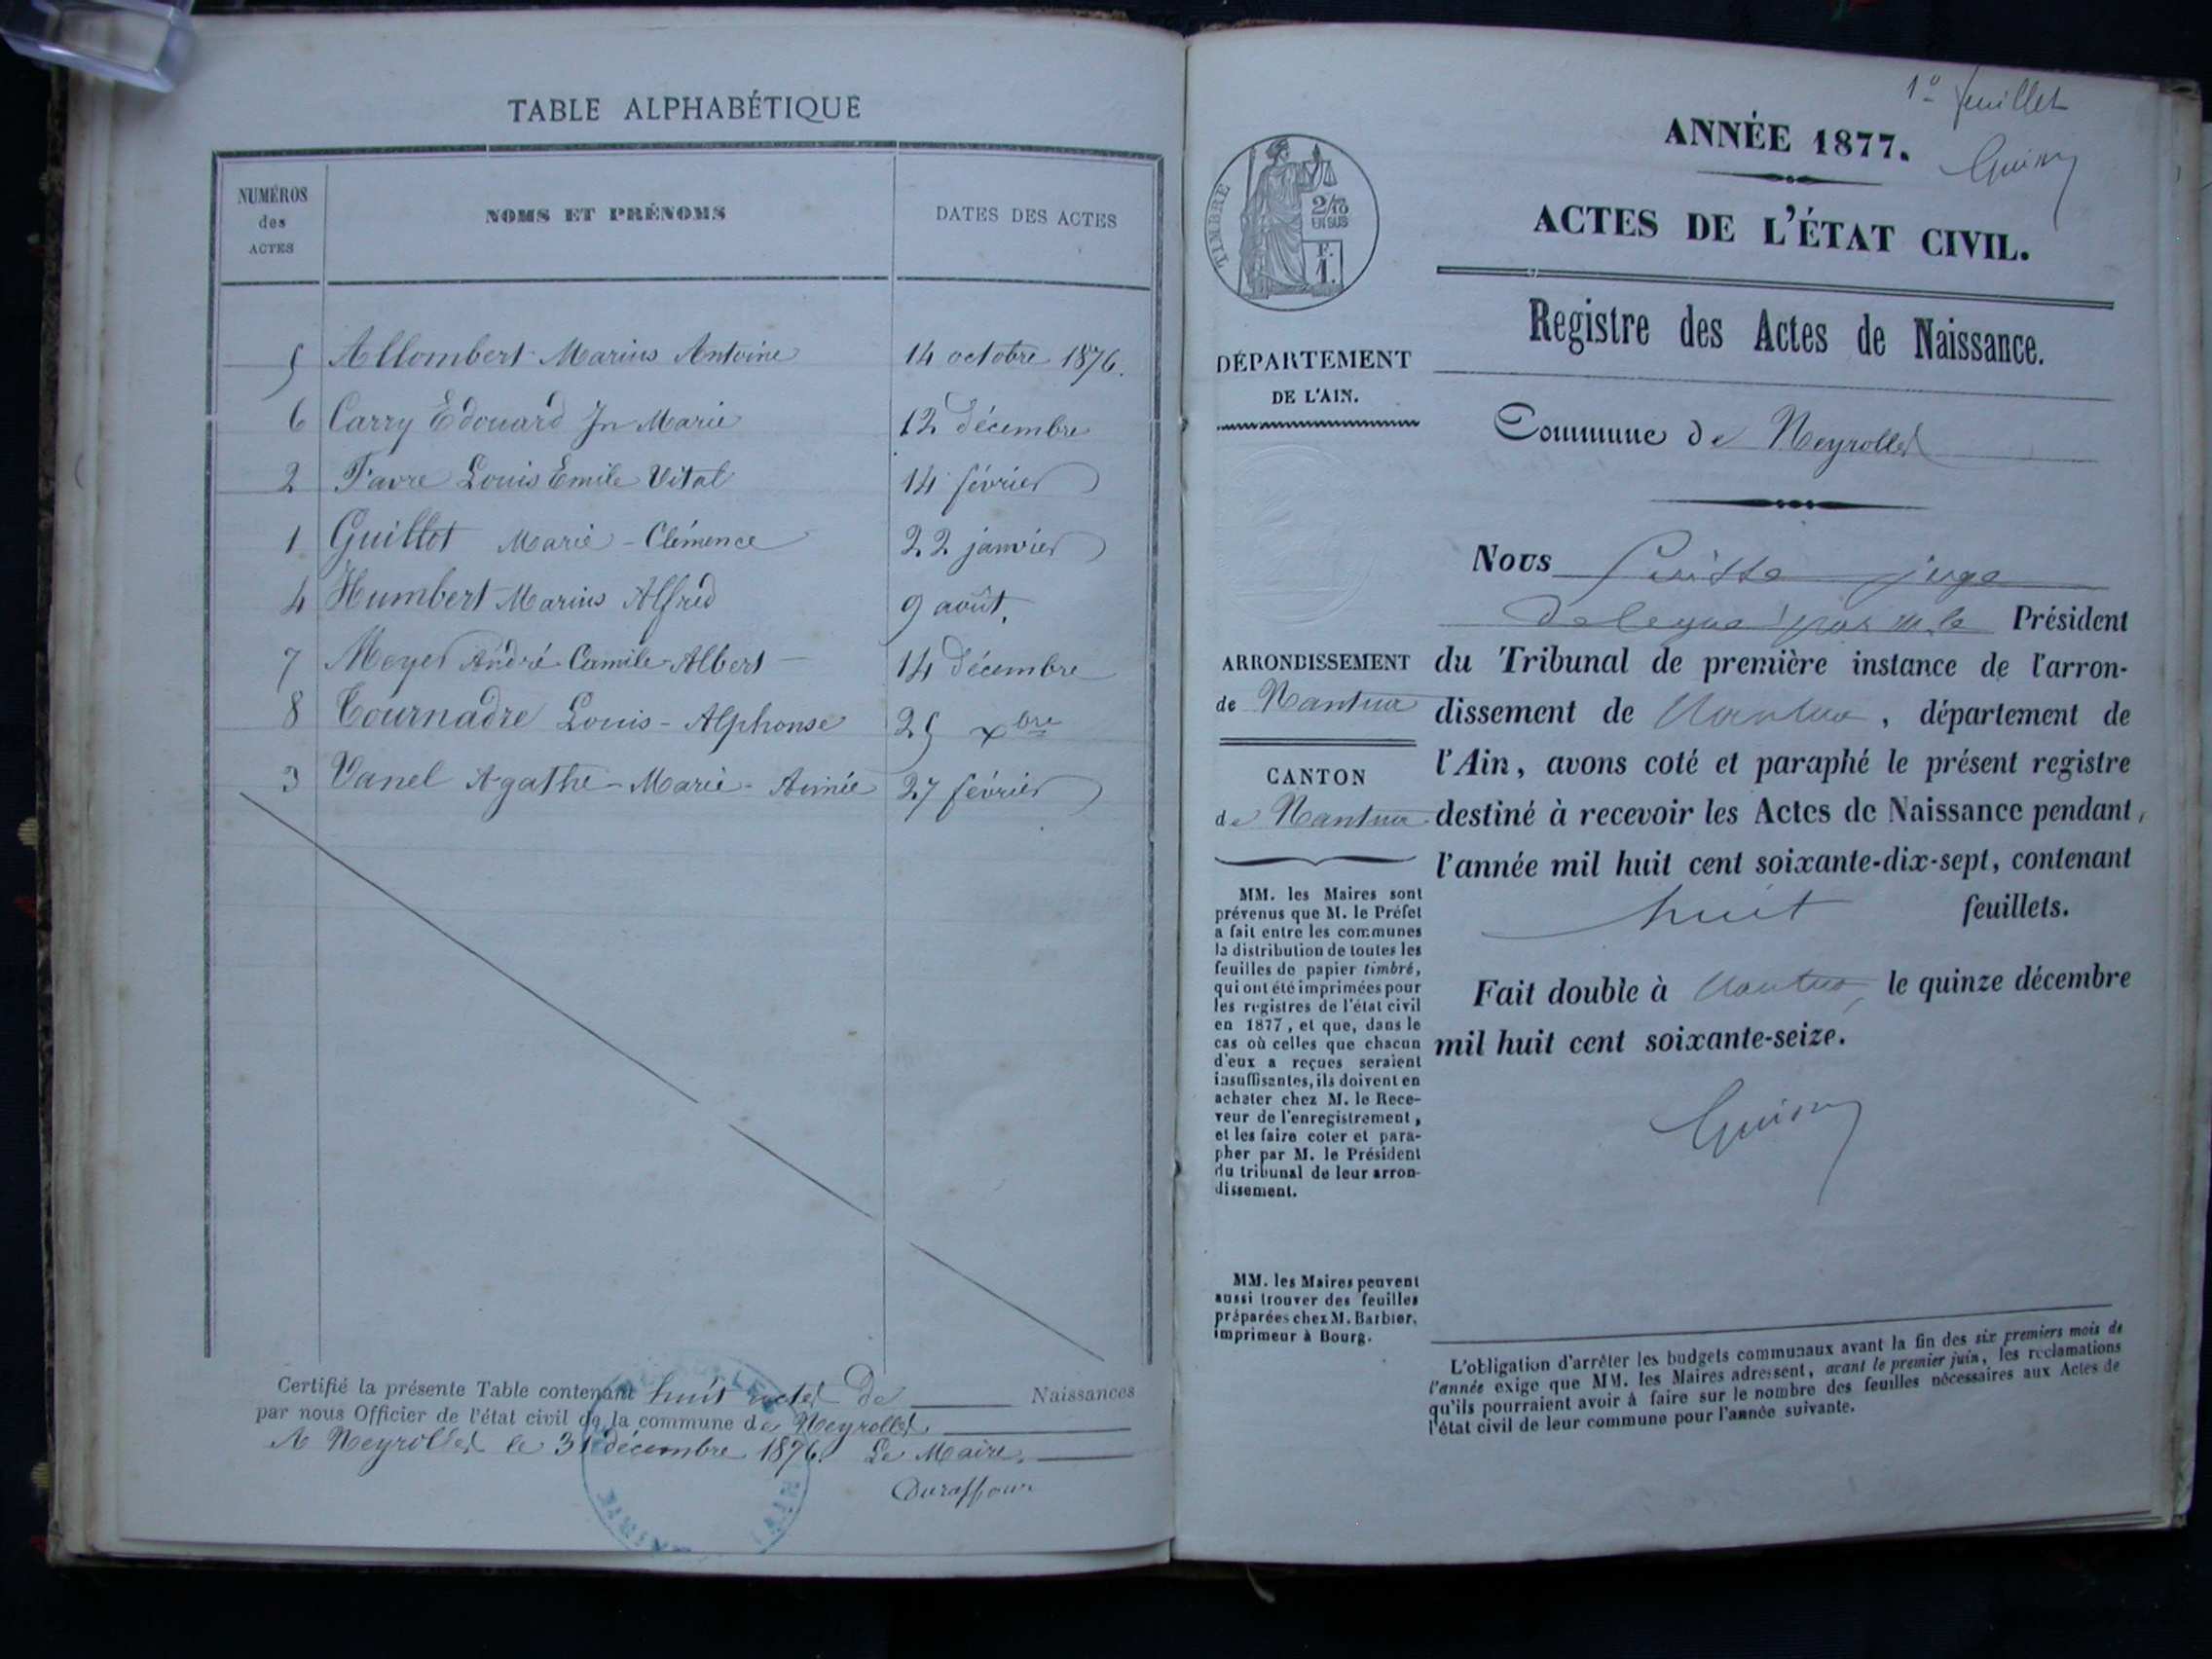 TABLE ALPHABÉTIQUE
NUMÉROS
des
ACTES
NOMS ET PRÉNOMS
DATES DES ACTES
5 Allombert Marius Antoine 14 octobre 1876.
6 Carry Edouard Jn Marie 12 décembre
2 Favre Louis Emile Vital 14 février
1 Guillot Marie - Clémence 22 janvier
4 Humbert Marius Alfred 9 août.
7 Meyer André Camile Albert 14 décembre
8 Tournadre Louis - Alphonse 25 xbre
3 Vanel Agathe - Marie - Aimée 27 février
Certifié la présente Table contenant huit actes de Naissances
par nous Officier de l'état civil de la commune de Neyrolles
A Neyrolles le 31 décembre 1876. Le Maire.
MAIRIE
AIN
1e feuillet
ANNÉE 1877.
ACTES DE L'ÉTAT CIVIL.
TIMBRE
2/10
EN SUS
F.
1.
Registre des Actes de Naissance.
DÉPARTEMENT
DE L'AIN.
Commune de Neyrolles
Nous juge
délégué par m. le Président
ARRONDISSEMENT
de Nantua
CANTON
de Nantua
du Tribunal de première instance de l'arron-
dissement de Nantua, département de
l'Ain, avons coté et paraphé le présent registre
destiné à recevoir les Actes de Naissance pendant,
l'année mil huit cent soixante-dix-sept, contenant
huit feuillets.
Fait double à Nantua, le quinze décembre
mil huit cent soixante-seize.
MM. les Maires sont
prévenus que M. le Préfet
a fait entre les communes
la distribution de toutes les
feuilles de papier timbré,
qui ont été imprimées pour
les registres de l'état civil
en 1877, et que, dans le
cas où celles que chacun
d'eux a reçues seraient
insuffisantes, ils doivent en
acheter chez M. le Rece-
veur de l'enregistrement,
et les faire coter et para-
pher par M. le Président
du tribunal de leur arron-
dissement.
MM. les Maires peuvent
aussi trouver des feuilles
préparées chez M. Barbier,
imprimeur à Bourg.
L'obligation d'arrêter les budgets communaux avant la fin des six premiers mois de
l'année exige que MM. les Maires adressent, avant le premier juin, les réclamations
qu'ils pourraient avoir à faire sur le nombre des feuilles nécessaires aux Actes de
l'état civil de leur commune pour l'année suivante.